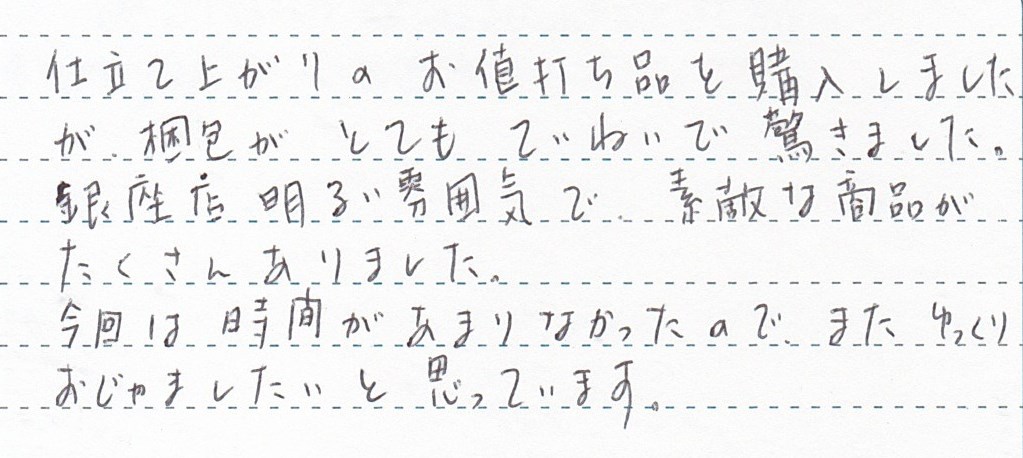 仕立て上がりの お値打ち品を購入しました
が、梱包が とても ていねいで 驚きました。
銀座店 明るい雰囲気で、素敵な商品が
たくさんありました。
今回は 時間があまりなかったので、また ゆっくり
おじゃましたいと思っています。